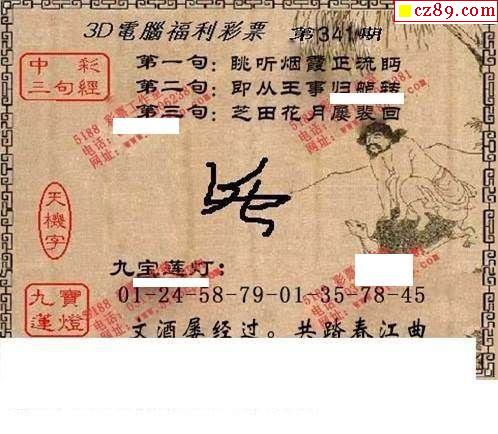 cz89.com
3D電腦福利彩票 第341期
中彩
三句經
第一句：眺听烟霞正流眄
第二句：即从王事归舻转
第三句：芝田花月屡裴回
天機字
九宝莲灯：
九寶
蓮燈
01-24-58-79-01-35-78-45
文酒屡经过。共踏春江曲